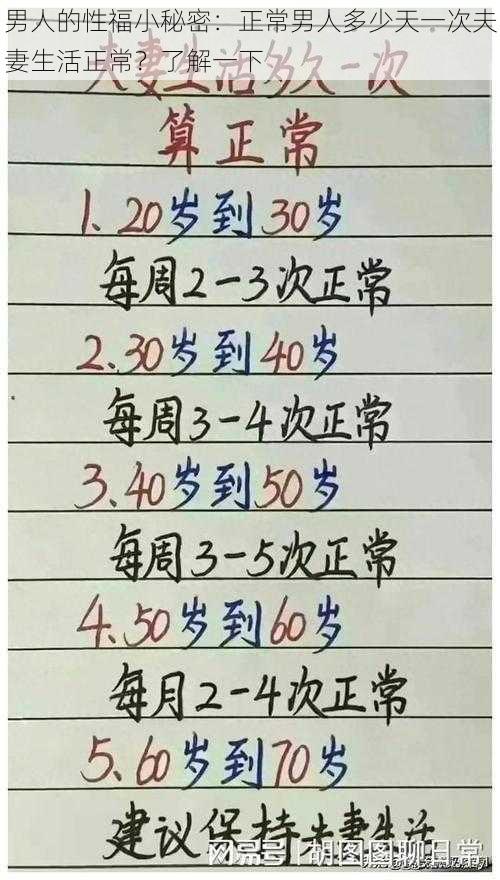 男人的性福小秘密：正常男人多少天一次夫
妻生活正常？了解一下
夫妻生活多久一次
算正常
1.20岁到30岁
每周2-3次正常
2.30岁到40岁
每周3-4次正常
3.40岁到50岁
每周3-5次正常
4.50岁到60岁
每月2-4次正常
5.60岁到70岁
建议保持夫妻生活
网易号 | 胡图图聊日常